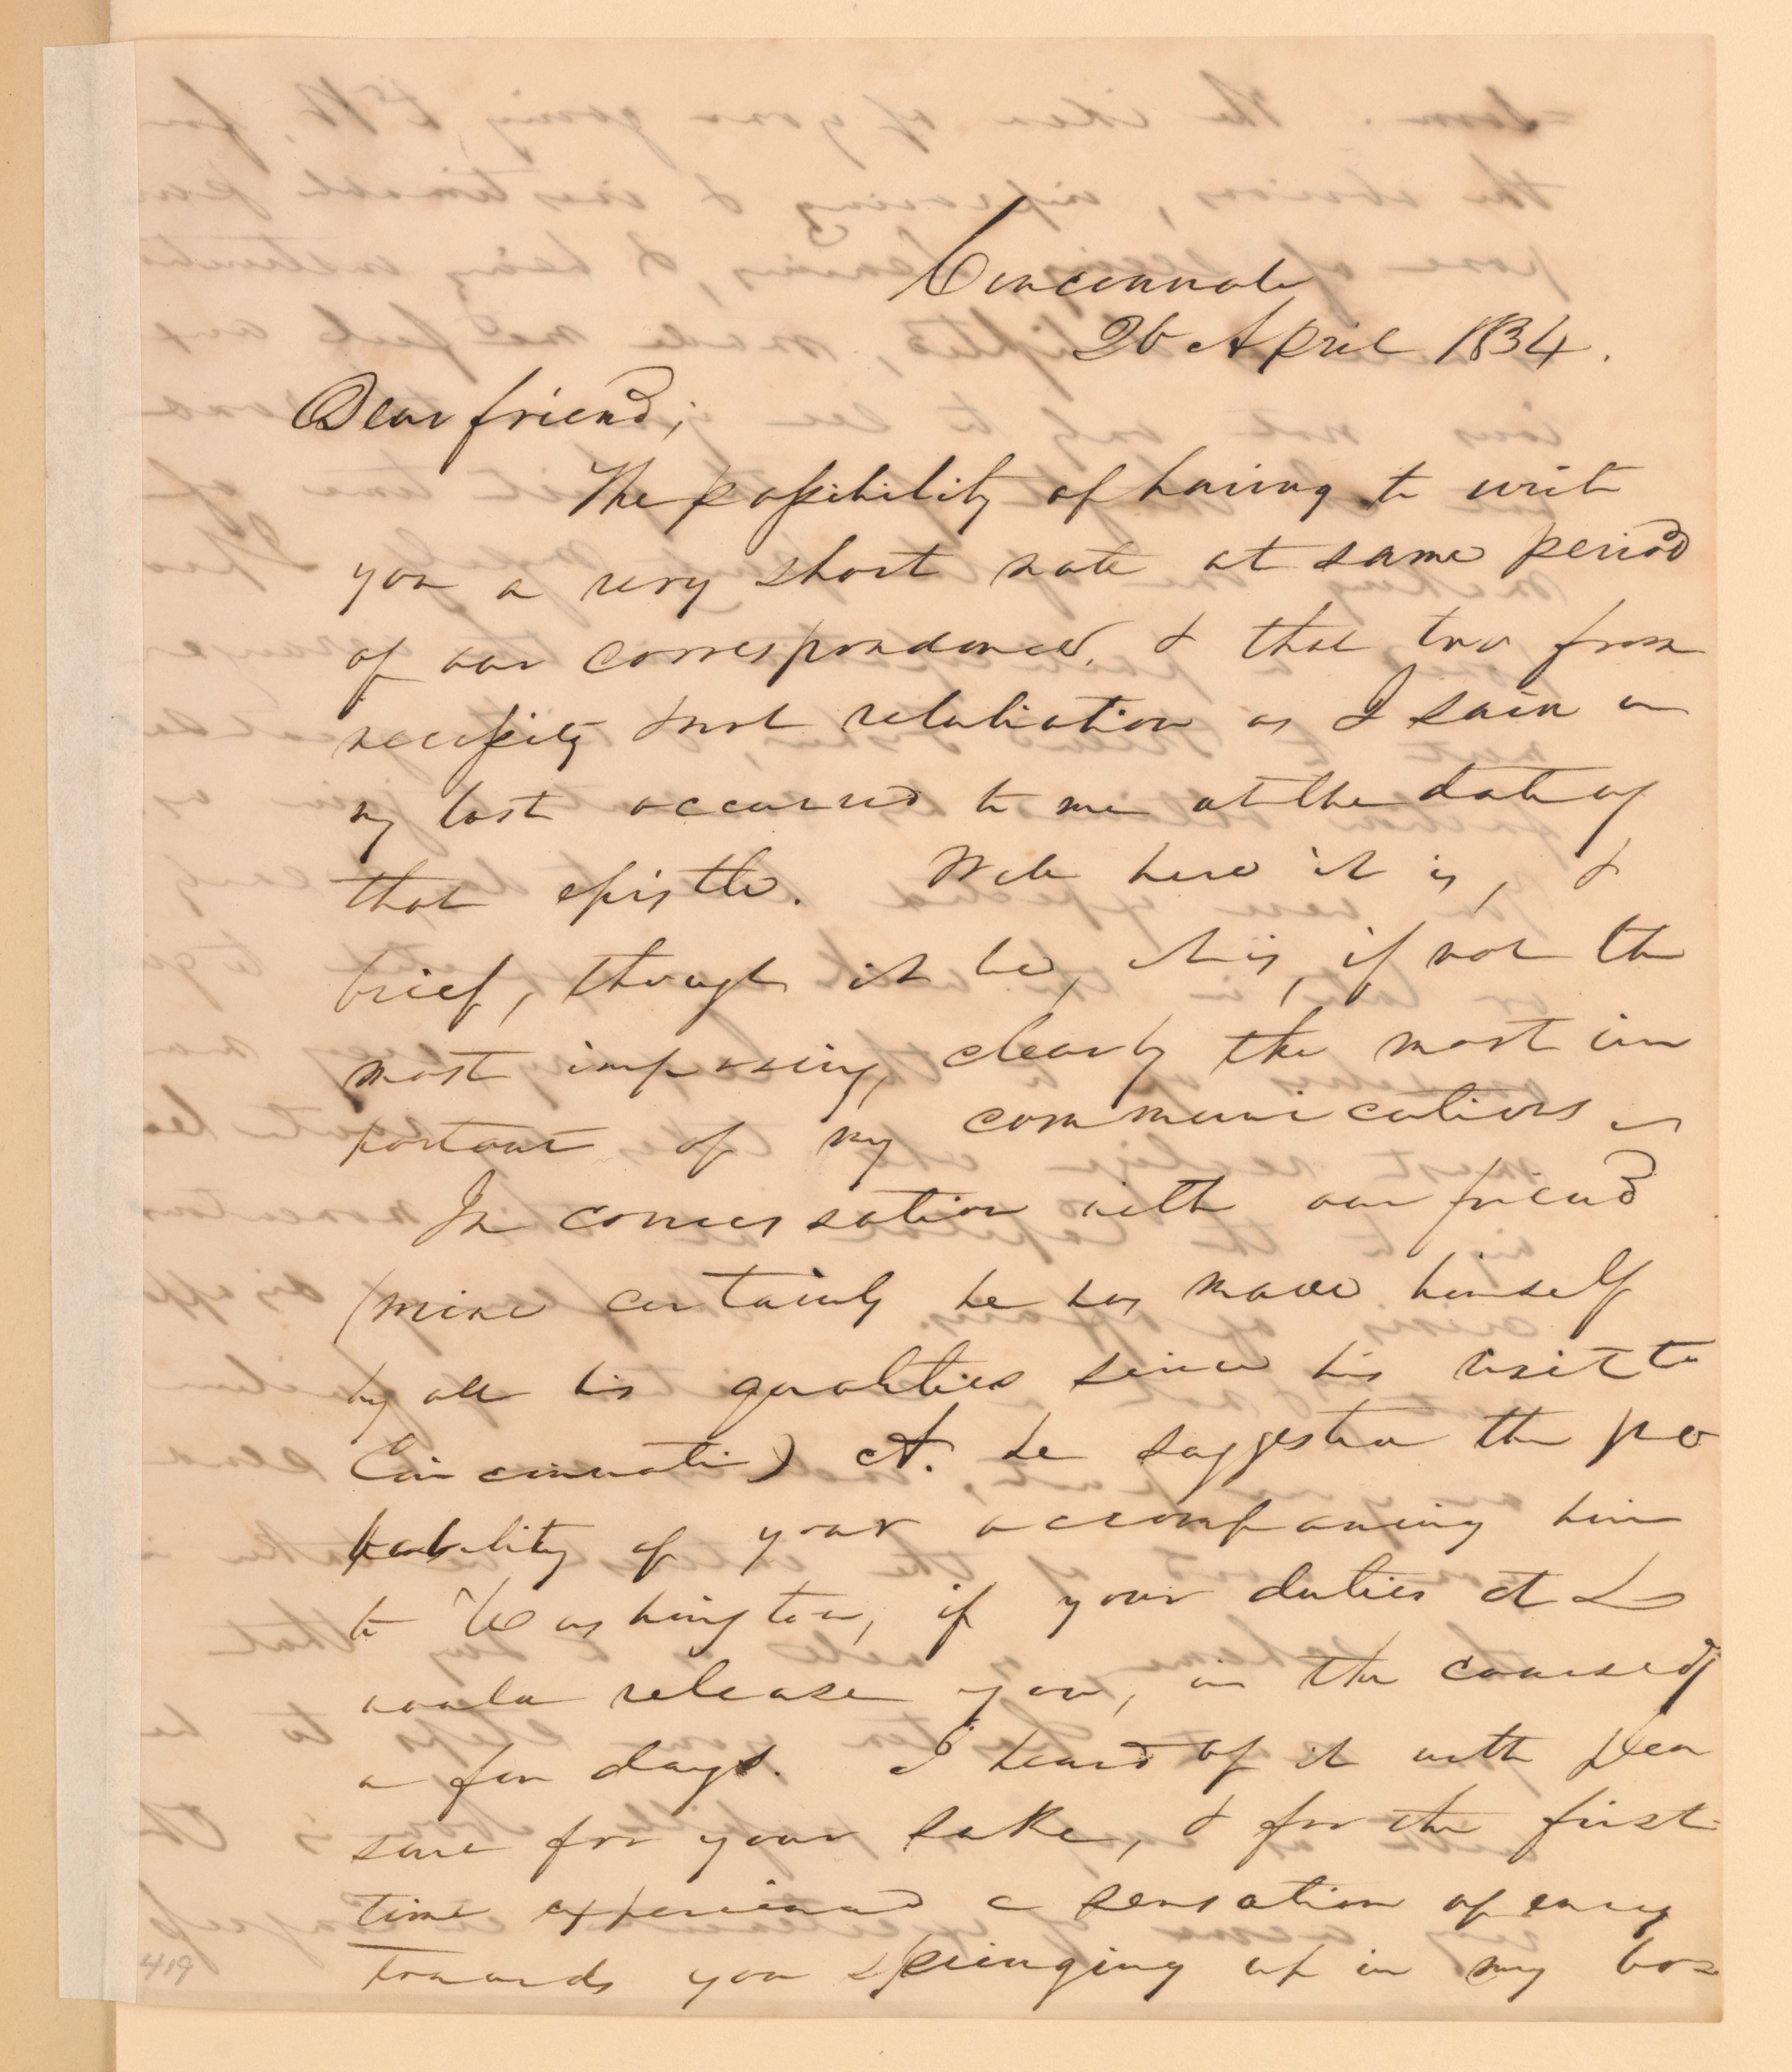 Cincinnati
26 April 1834.
Dear friend;
The possibility of having to write
you a very short note at some period
of our correspondence, & that too from
necessity & not retaliation as I said in
my last occurred to me at the date of
that epistle. Well here it is, &
brief, though it be, it is, if not the
most imposing, clearly the most im
portant of my communications
In conversation with our friend
(mine certainly he has made himself
by all his qualities since his visit to
Cincinnati) A. he suggested the pro
bability of your accompanying him
to Washington, if your duties at L
would release you, in the course of
a few days. I heard of it with plea
sure for your sake, & for the first
time experienced a sensation of envy
towards you springing up in my bos
419